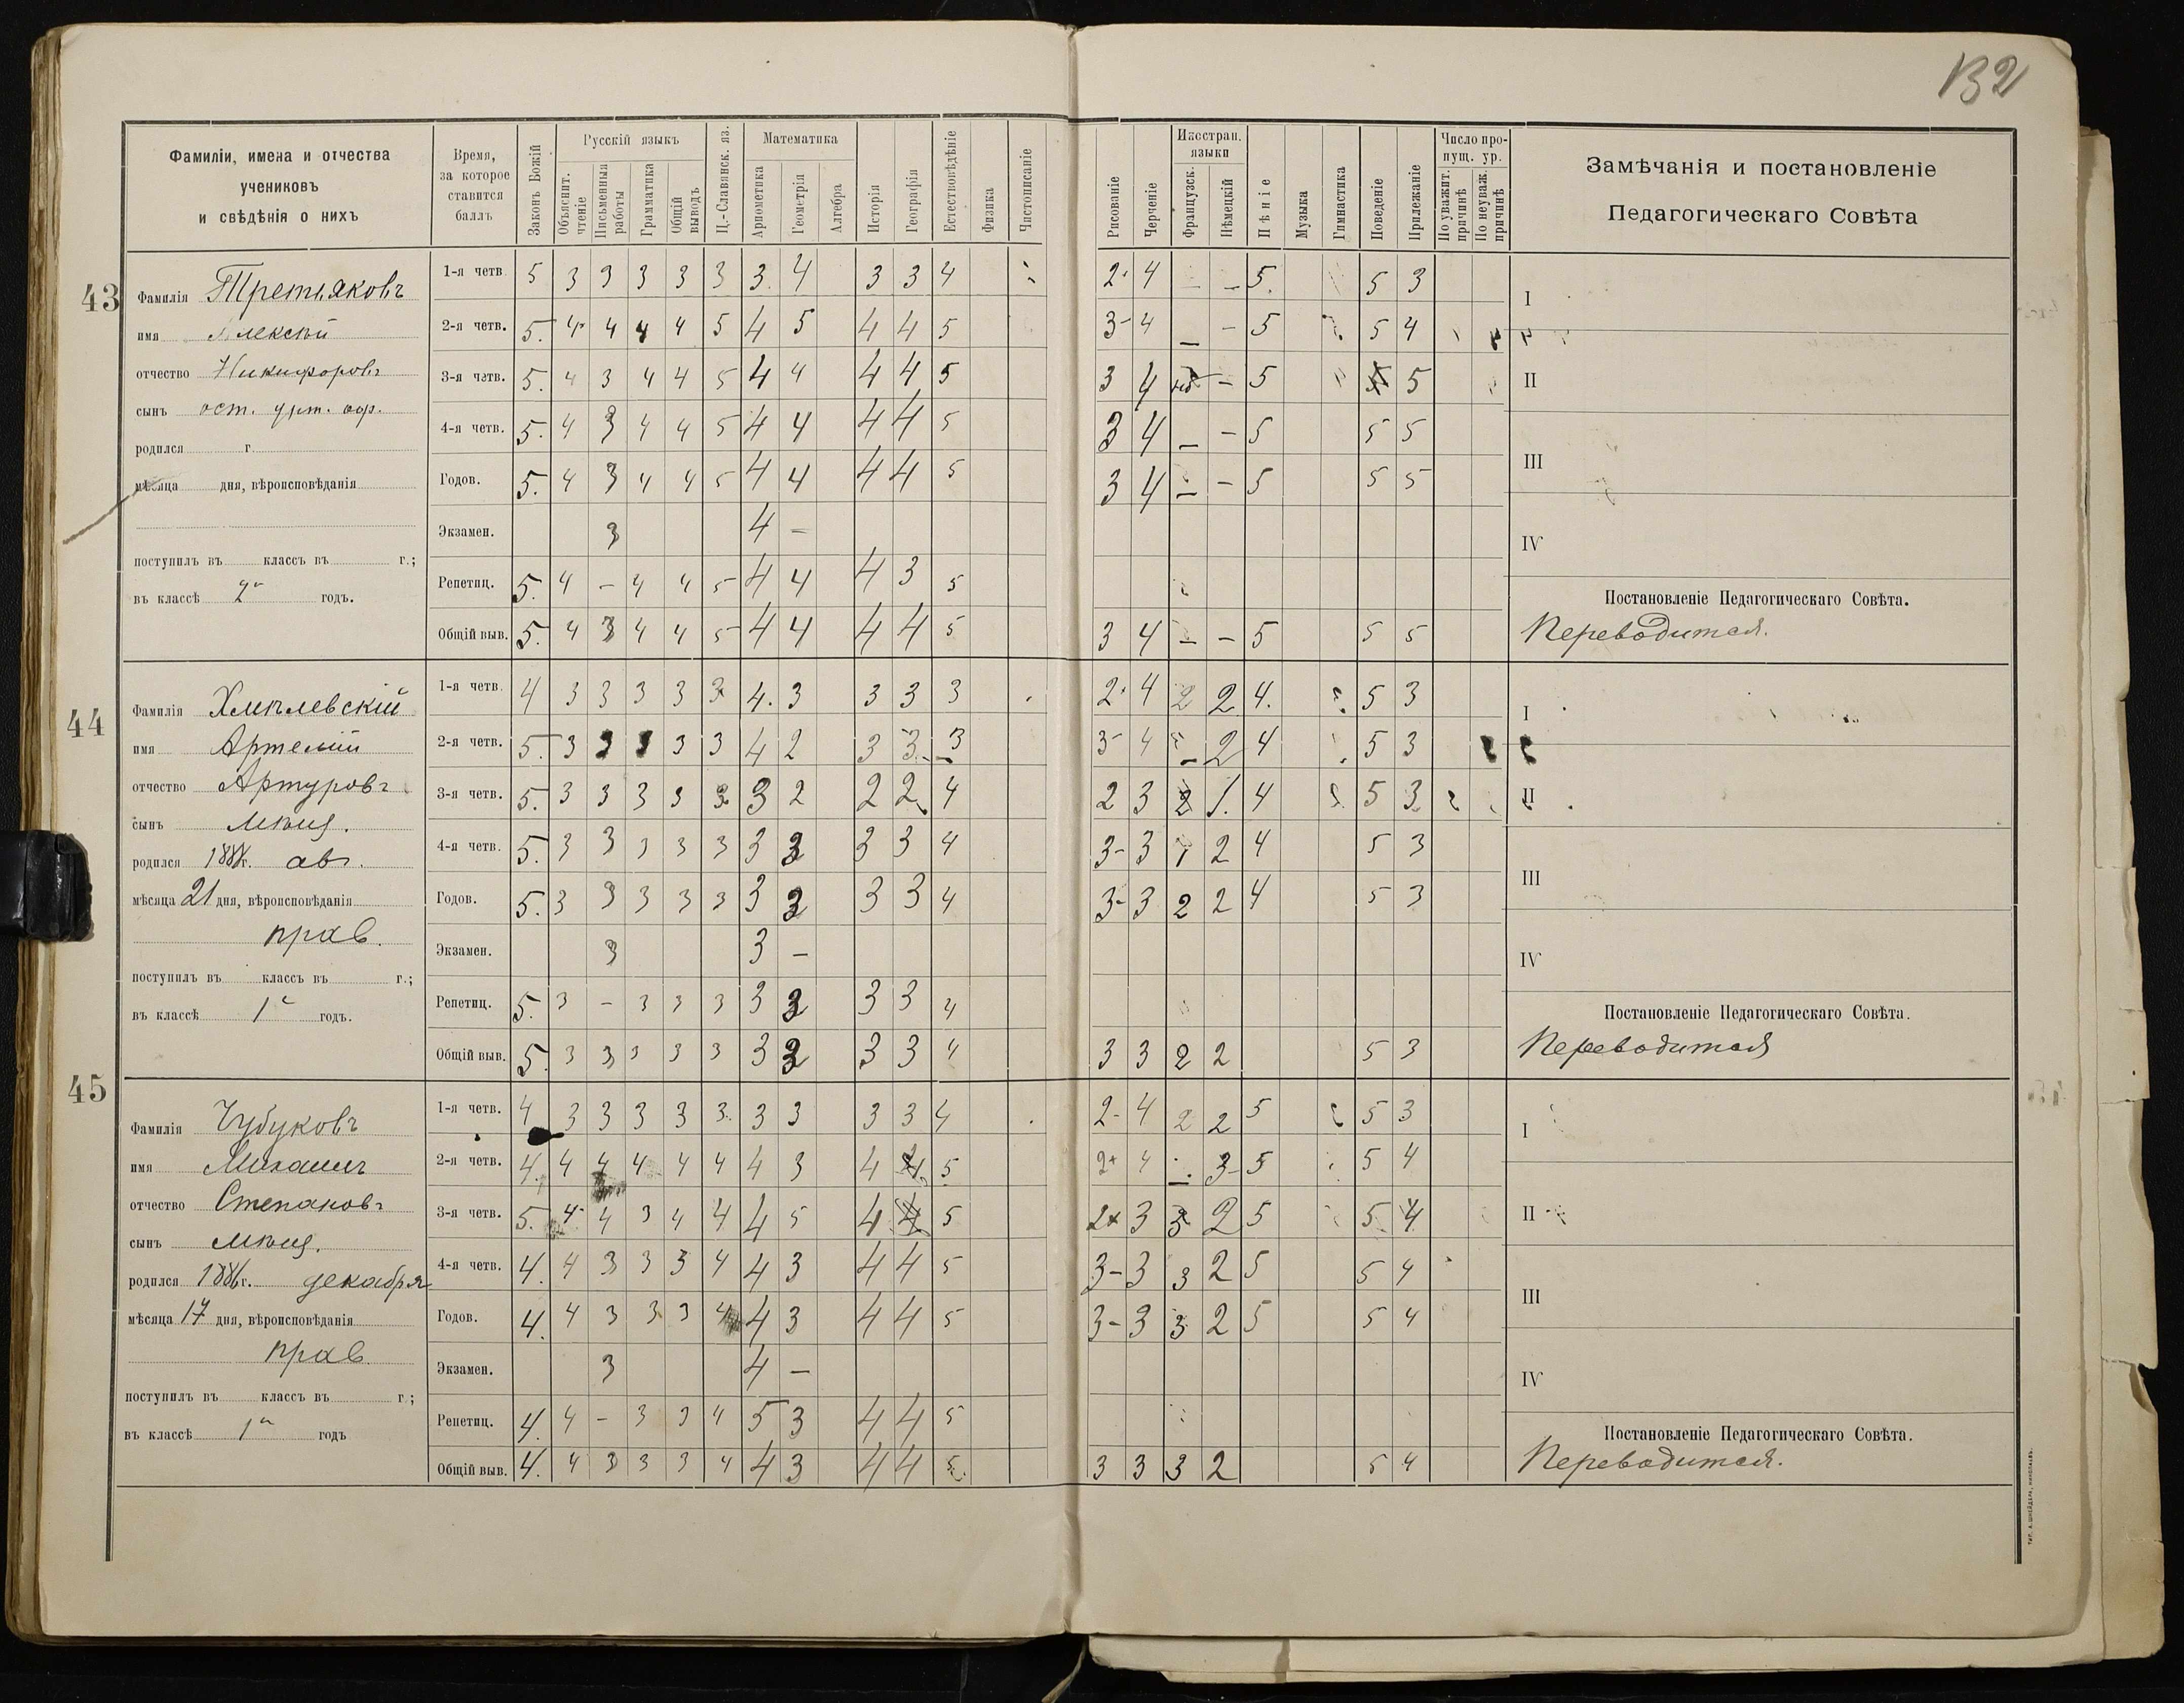 132
Фамиліи, имена и отчества
учениковъ
и свѣдѣнія о нихъ
Время,
за которое
ставится
баллъ
Законъ Божій
Русскій языкъ
Объяснит. чтеніе
Письменныя работы
Грамматика
Общій выводъ
Ц.-Славянск. яз.
Математика
Ариѳметика
Геометрія
Алгебра
Исторія
Географія
Естествовѣдѣніе
Физика
Чистописаніе
Рисованіе
Черченіе
Иностран. языки
Французск.
Нѣмецкій
Пѣніе
Музыка
Гимнастика
Поведеніе
Прилежаніе
Число пропущ. ур.
По уважит. причинѣ
По неуваж. причинѣ
Замѣчанія и постановленіе
Педагогическаго Совѣта
43
Фамилія Третьяковъ
имя Алексѣй
отчество Никифоровъ
сынъ
родился г.
мѣсяца дня, вѣроисповѣданія
поступилъ въ классъ въ г.;
въ классѣ 2й годъ.
1-я четв. 5 3 3 3 3 3 3. 4 3 3 4 2· 4 – – 5. 5 3
2-я четв. 5. 4 4 4 4 5 4 5 4 4 5 3- 4 – – 5 5 4
3-я четв. 5. 4 3 4 4 5 4 4 4 4 5 3 4 – 5 5
4-я четв. 5. 4 3 4 4 5 4 4 4 4 5 3 4 – – 5 5 5
Годов. 5. 4 3 4 4 5 4 4 4 4 5 3 4 – – 5 5 5
Экзамен. 3 4 –
Репетиц. 5. 4 – 4 4 5 4 4 4 3 5
Общій выв. 5. 4 3 4 4 5 4 4 4 4 5 3 4 – – 5 5 5
I
II
III
IV
Постановленіе Педагогическаго Совѣта.
Переводится.
44
Фамилія Хмѣлевскій
имя Артемій
отчество Артуровъ
сынъ мѣщ.
родился г. авг.
мѣсяца 21 дня, вѣроисповѣданія
прав.
поступилъ въ классъ въ г.;
въ классѣ 1й годъ.
1-я четв. 4 3 3 3 3 3 4. 3 3 3 3 2· 4 2 2 4. 5 3
2-я четв. 5. 3 3 3 3 3 4 2 3 3 3 3- 4 – 2 4 5 3
3-я четв. 5. 3 3 3 3 3 3 2 2 2 4 2 3 2 1. 4 5 3
4-я четв. 5. 3 3 3 3 3 3 3 3 3 4 3- 3 1 2 4 5 3
Годов. 5. 3 3 3 3 3 3 3 3 3 4 3- 3 2 2 4 5 3
Экзамен. 3 3 –
Репетиц. 5. 3 – 3 3 3 3 3 3 3 4
Общій выв. 5. 3 3 3 3 3 3 3 3 3 4 3 3 2 2 5 3
I
II
III
IV
Постановленіе Педагогическаго Совѣта.
Переводится
45
Фамилія Чубуковъ
имя Михаилъ
отчество Степановъ
сынъ мѣщ.
родился 1886 г. декабря
мѣсяца 17 дня, вѣроисповѣданія
прав.
поступилъ въ классъ въ г.;
въ классѣ 1й годъ
1-я четв. 4 3 3 3 3 3 3 3 3 3 4 2- 4 2 2 5 5 3
2-я четв. 4. 4 4 4 4 4 4 3 4 4 5 2+ 4 – 3- 5 5 4
3-я четв. 5. 4 4 3 4 4 4 5 4 4 5 2+ 3 3 2 5 5 4
4-я четв. 4. 4 3 3 3 4 4 3 4 4 5 3- 3 3 2 5 5 4
Годов. 4. 4 3 3 3 4 4 3 4 4 5 3- 3 3 2 5 5 4
Экзамен. 3 4 –
Репетиц. 4. 4 – 3 3 4 5 3 4 4 5
Общій выв. 4. 4 3 3 3 4 4 3 4 4 5 3 3 3 2 5 4
I
II
III
IV
Постановленіе Педагогическаго Совѣта.
Переводится.